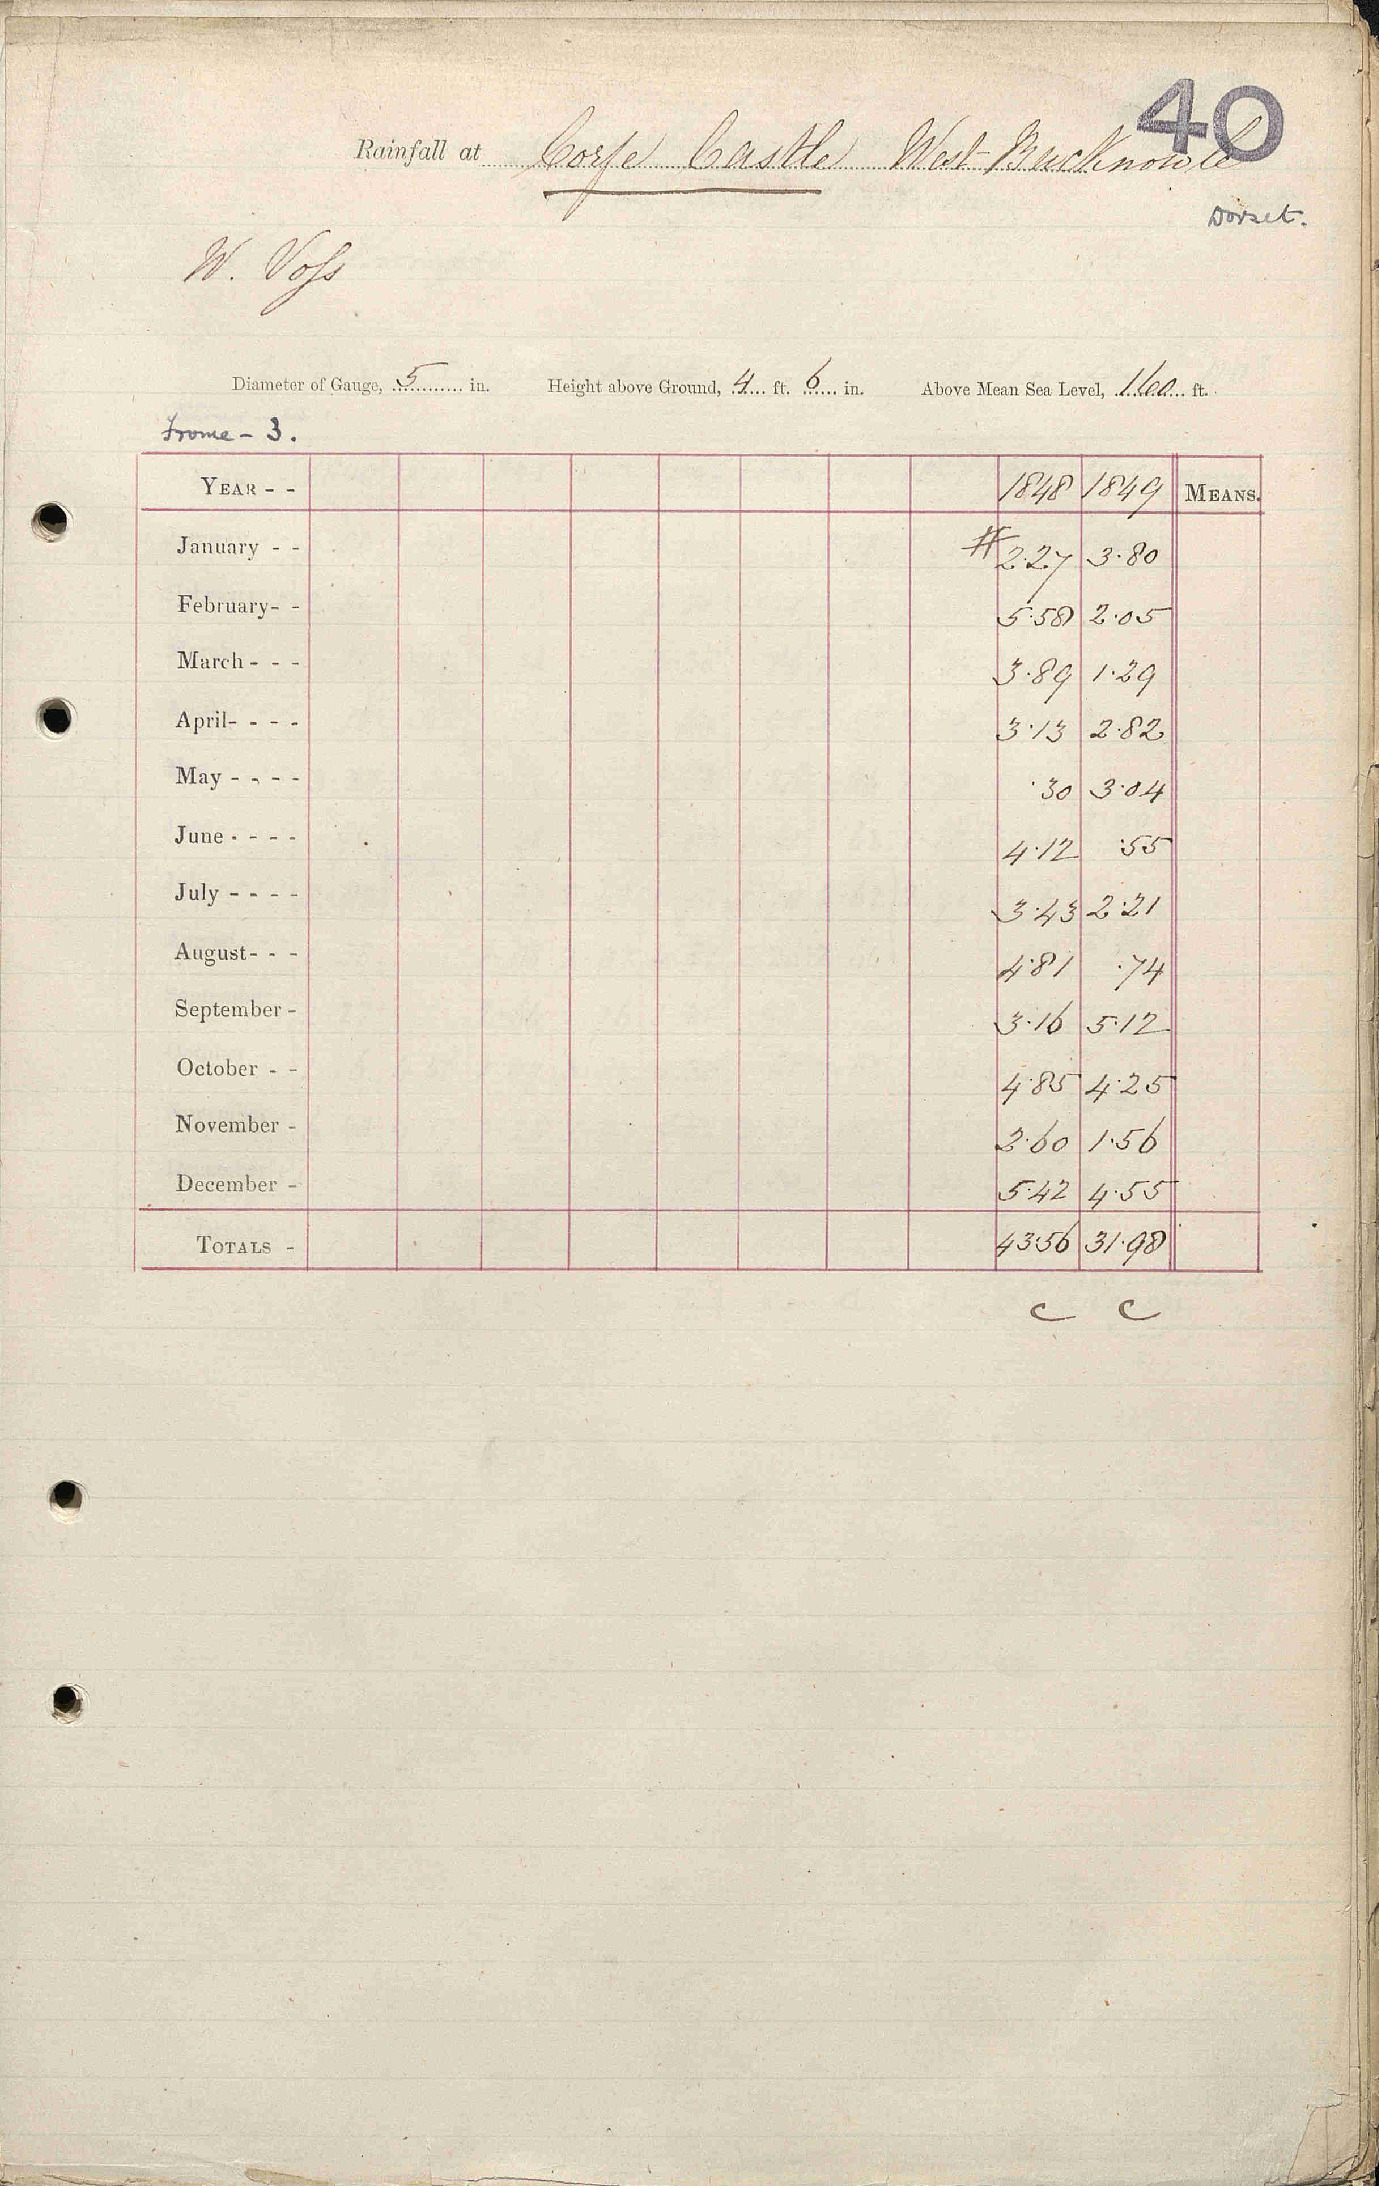 40
Rainfall at Corfe Castle West Bucknowle
Dorset.
W. Voss
Diameter of Gauge, 5 in. Height above Ground, 4 ft. 6 in. Above Mean Sea Level, 160 ft.
Frome - 3.
YEAR - - 1848 1849 MEANS.
January - - # 2.27 3.80
February - - 5.58 2.05
March - - - 3.89 1.29
April - - - - 3.13 2.82
May - - - - .30 3.04
June - - - - 4.12 .55
July - - - - 3.43 2.21
August - - - 4.81 .74
September - 3.16 5.12
October - - 4.85 4.25
November - 2.60 1.56
December - 5.42 4.55
TOTALS - 43.56 31.98
C C